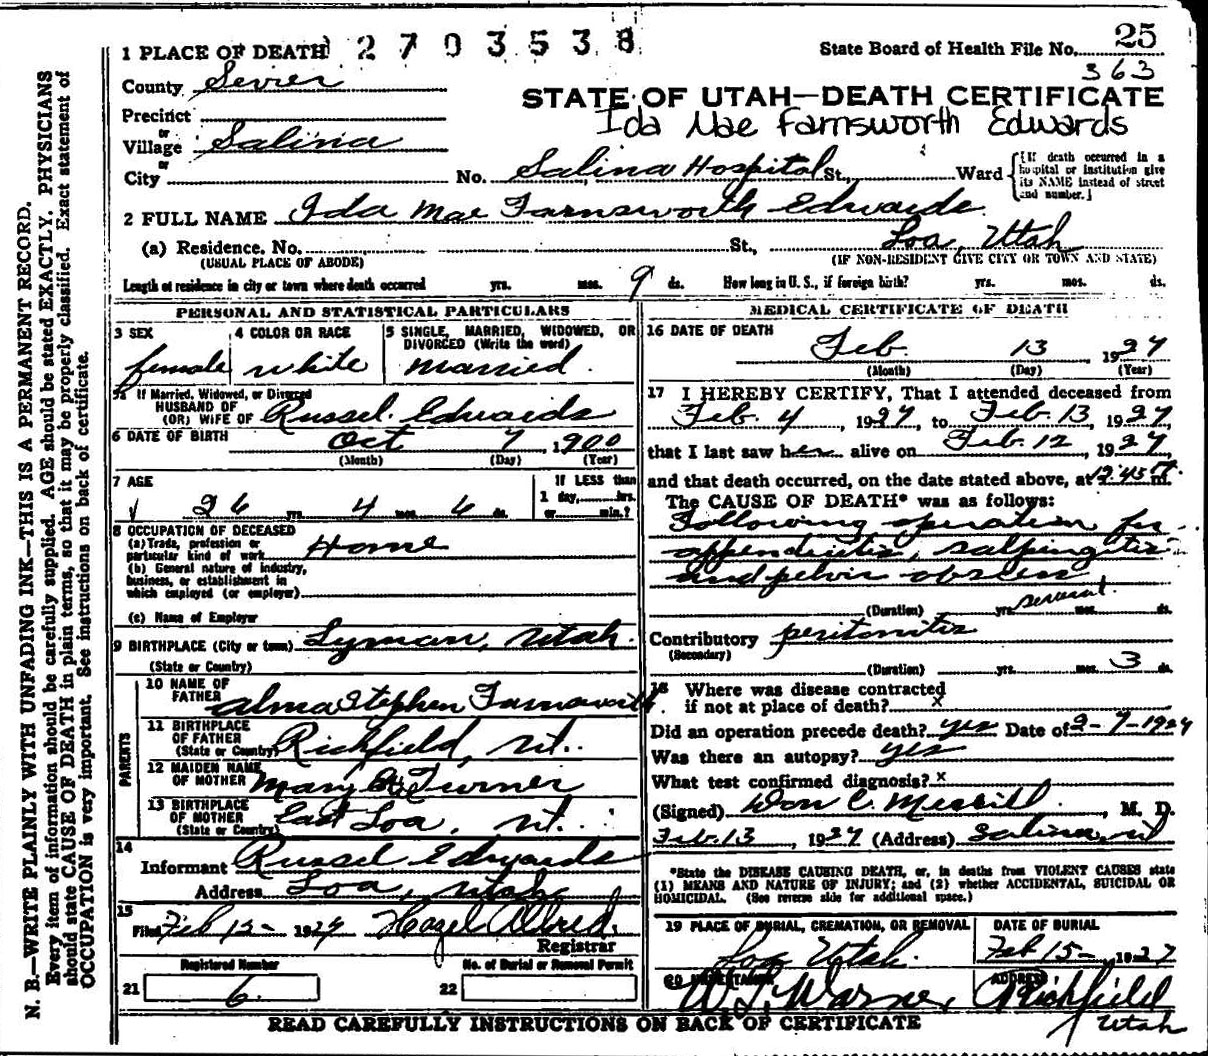 2703538
State Board of Health File No. 25
363
1 PLACE OF DEATH
County Sevier
STATE OF UTAH—DEATH CERTIFICATE
Ida Mae Farnsworth Edwards
Precinct
or
Village Salina
or
City No. Salina Hospital St., Ward
{If death occurred in a
hospital or institution give
its NAME instead of street
and number.}
2 FULL NAME Ida Mae Farnsworth Edwards
(a) Residence, No. St., Loa, Utah
(USUAL PLACE OF ABODE) (IF NON-RESIDENT GIVE CITY OR TOWN AND STATE)
Length of residence in city or town where death occurred yrs. mos. 9 ds. How long in U. S., if foreign birth? yrs. mos. ds.
PERSONAL AND STATISTICAL PARTICULARS
3 SEX
female
4 COLOR OR RACE
white
5 SINGLE, MARRIED, WIDOWED, OR
DIVORCED (Write the word)
married.
5a If Married, Widowed, or Divorced
HUSBAND OF
(OR) WIFE OF Russel Edwards
6 DATE OF BIRTH Oct 7, 1900
(Month) (Day) (Year)
7 AGE
26 yrs. 4 mos. 6 ds.
If LESS than
1 day, hrs.
or min.?
8 OCCUPATION OF DECEASED
(a) Trade, profession or
particular kind of work Home
(b) General nature of industry,
business, or establishment in
which employed (or employer)
(c) Name of Employer
9 BIRTHPLACE (City or town) Lyman, Utah.
(State or Country)
PARENTS
10 NAME OF
FATHER Alma Stephen Farnsworth
11 BIRTHPLACE
OF FATHER
(State or Country) Richfield, Ut.
12 MAIDEN NAME
OF MOTHER Mary Turner
13 BIRTHPLACE
OF MOTHER
(State or Country) East Loa, Ut.
14
Informant Russel Edwards
Address Loa, Utah
15
Filed Feb 15- 1927 Hazel Aldred.
Registrar
Registered Number
21 6.
No. of Burial or Removal Permit
22
MEDICAL CERTIFICATE OF DEATH
16 DATE OF DEATH
Feb. 13, 1927
(Month) (Day) (Year)
17 I HEREBY CERTIFY, That I attended deceased from
Feb. 4, 1927, to Feb. 13, 1927,
that I last saw her alive on Feb. 12, 1927,
and that death occurred, on the date stated above, at 12:45 m.
The CAUSE OF DEATH* was as follows:
Following operation for
appendicitis, salpingitis
and pelvic abscess
(Duration) yrs. several mos. ds.
Contributory peritonitis
(Secondary)
(Duration) yrs. mos. 3 ds.
18 Where was disease contracted
if not at place of death? x
Did an operation precede death? yes Date of 2-7-1927
Was there an autopsy? yes
What test confirmed diagnosis? x
(Signed) Don C. Merrill, M. D.
Feb. 13, 1927 (Address) Salina, Ut
*State the DISEASE CAUSING DEATH, or, in deaths from VIOLENT CAUSES state
(1) MEANS AND NATURE OF INJURY; and (2) whether ACCIDENTAL, SUICIDAL OR
HOMICIDAL. (See reverse side for additional space.)
19 PLACE OF BURIAL, CREMATION, OR REMOVAL
Loa Utah.
DATE OF BURIAL
Feb 15-, 1927
20 UNDERTAKER
Warner,
ADDRESS
Richfield
Utah
READ CAREFULLY INSTRUCTIONS ON BACK OF CERTIFICATE
N. B.—WRITE PLAINLY WITH UNFADING INK—THIS IS A PERMANENT RECORD.
Every item of information should be carefully supplied. AGE should be stated EXACTLY. PHYSICIANS
should state CAUSE OF DEATH in plain terms, so that it may be properly classified. Exact statement of
OCCUPATION is very important. See instructions on back of certificate.